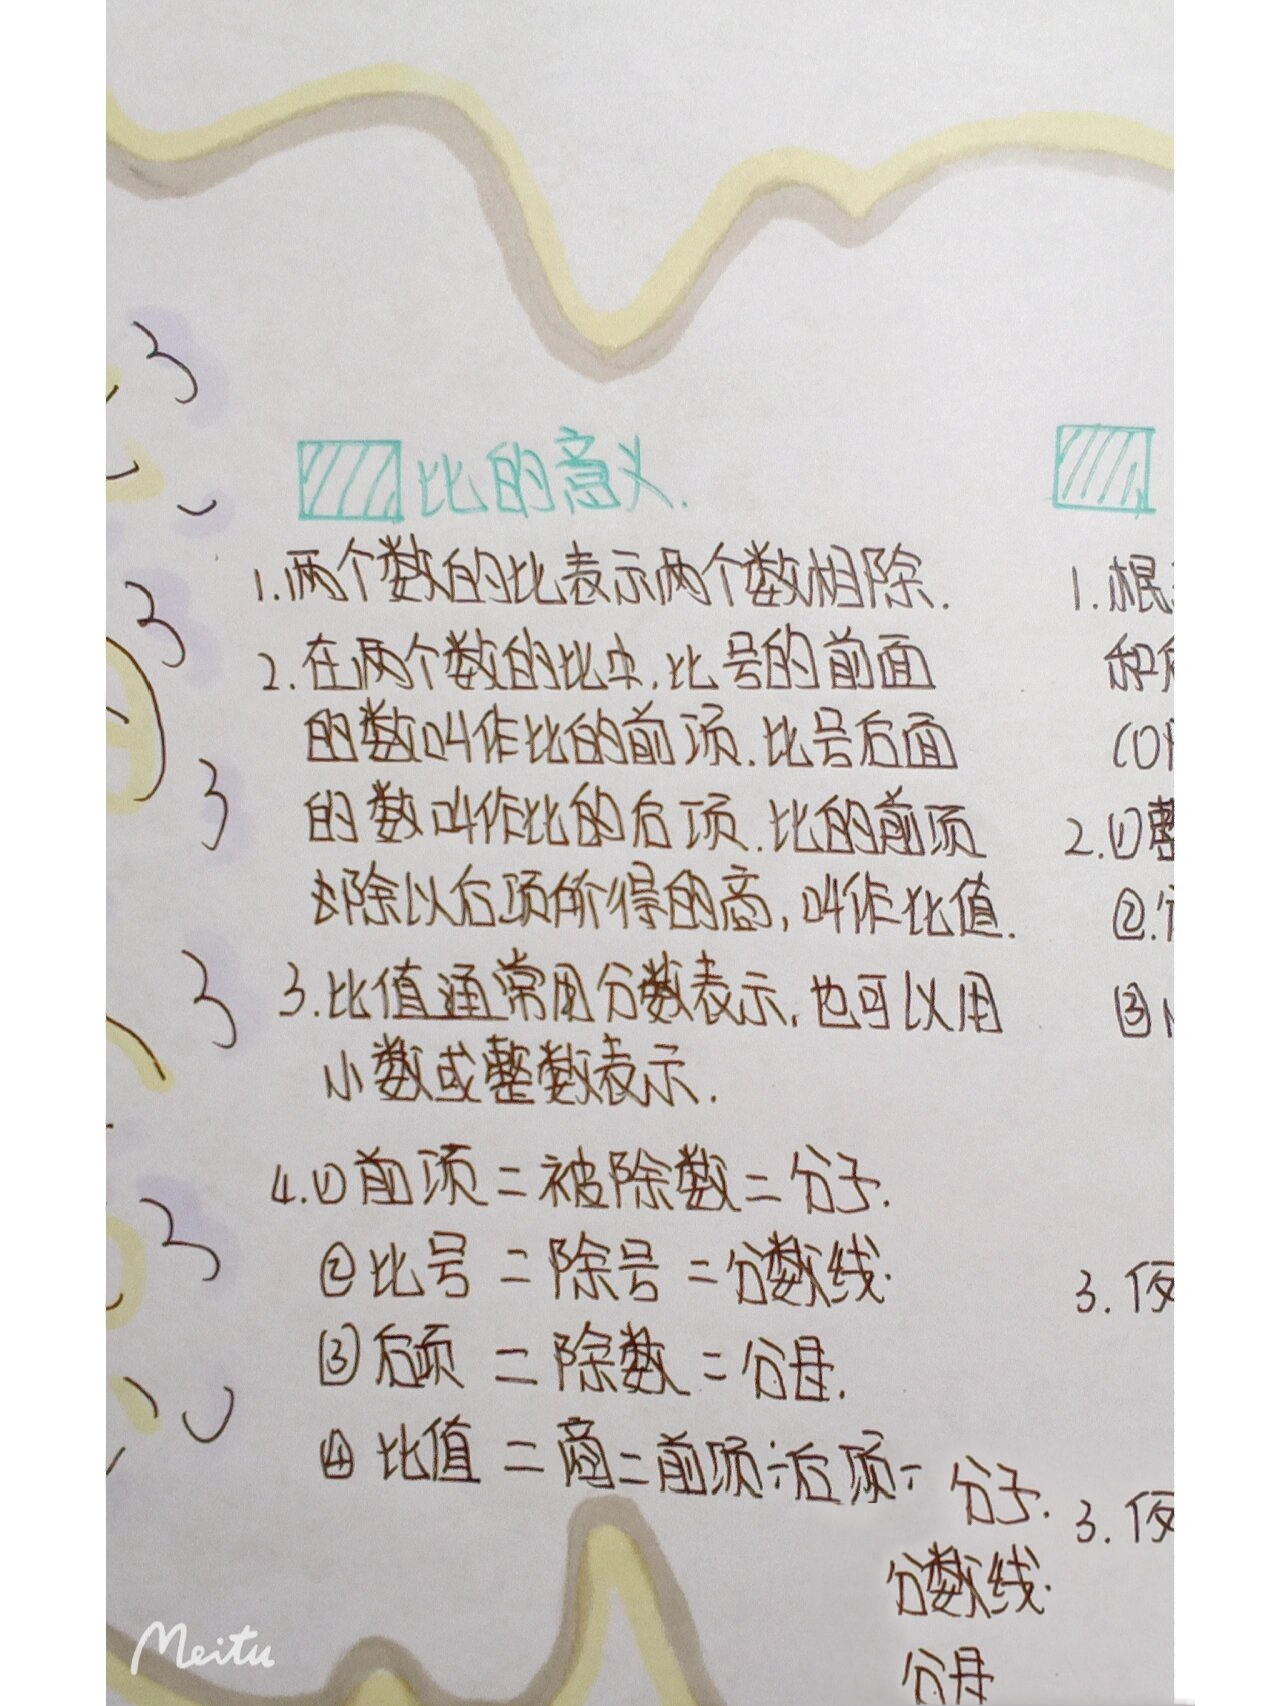 比的意义.
1.两个数的比表示两个数相除.
2.在两个数的比中,比号的前面
的数叫作比的前项.比号后面
的数叫作比的后项.比的前项
除以后项所得的商,叫作比值.
3.比值通常用分数表示,也可以用
小数或整数表示.
4.①前项=被除数=分子.
②比号=除号=分数线.
③后项=除数=分母.
④比值=商=前项÷后项÷分子.
分数线.
分母
1.根
和
2.①整
②.
③
3.仮
3.仮
Meitu